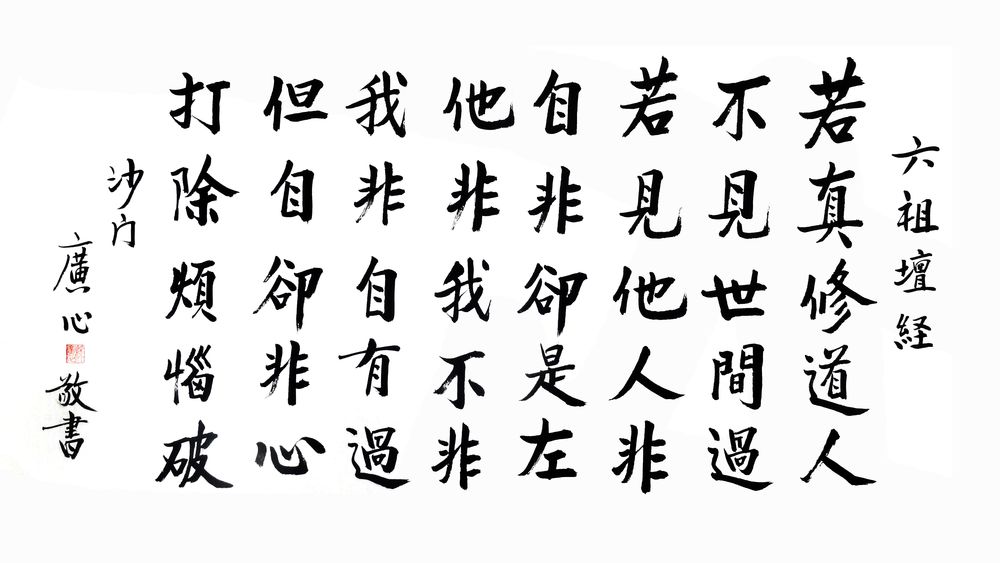 六祖壇経
若真修道人
不見世間過
若見他人非
自非卻是左
他非我不非
我非自有過
但自卻非心
打除煩惱破
沙门
廣心敬書